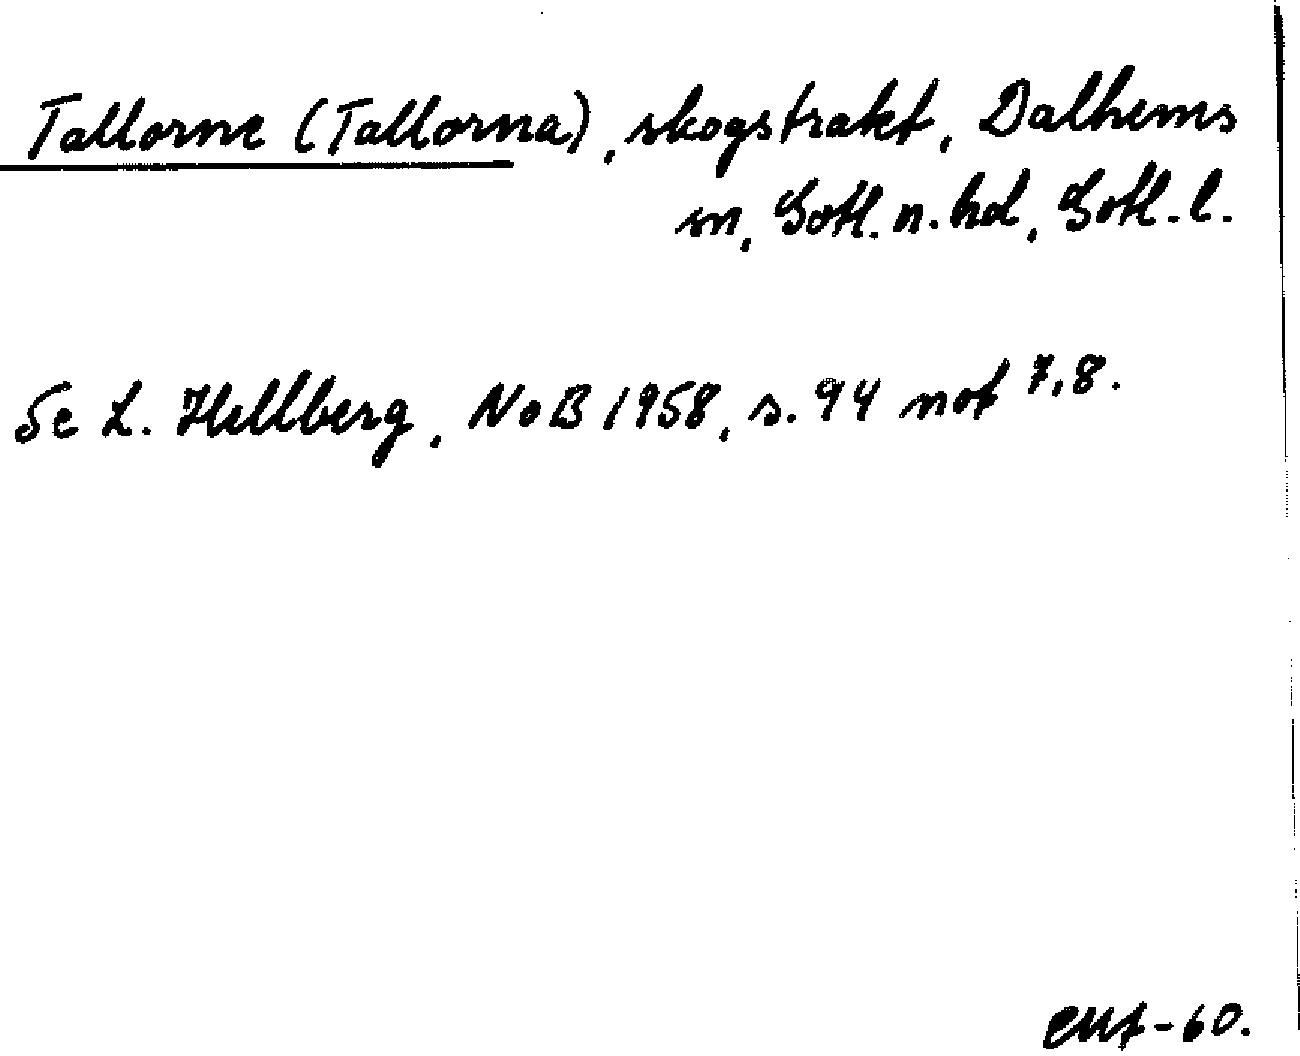 Tallorne (Tallorna), skogstrakt, Dalhems
sn, Gotl. n. hd, Gotl. l.
Se L. Hellberg, NoB 1958, s. 94 not 7,8.
-60.